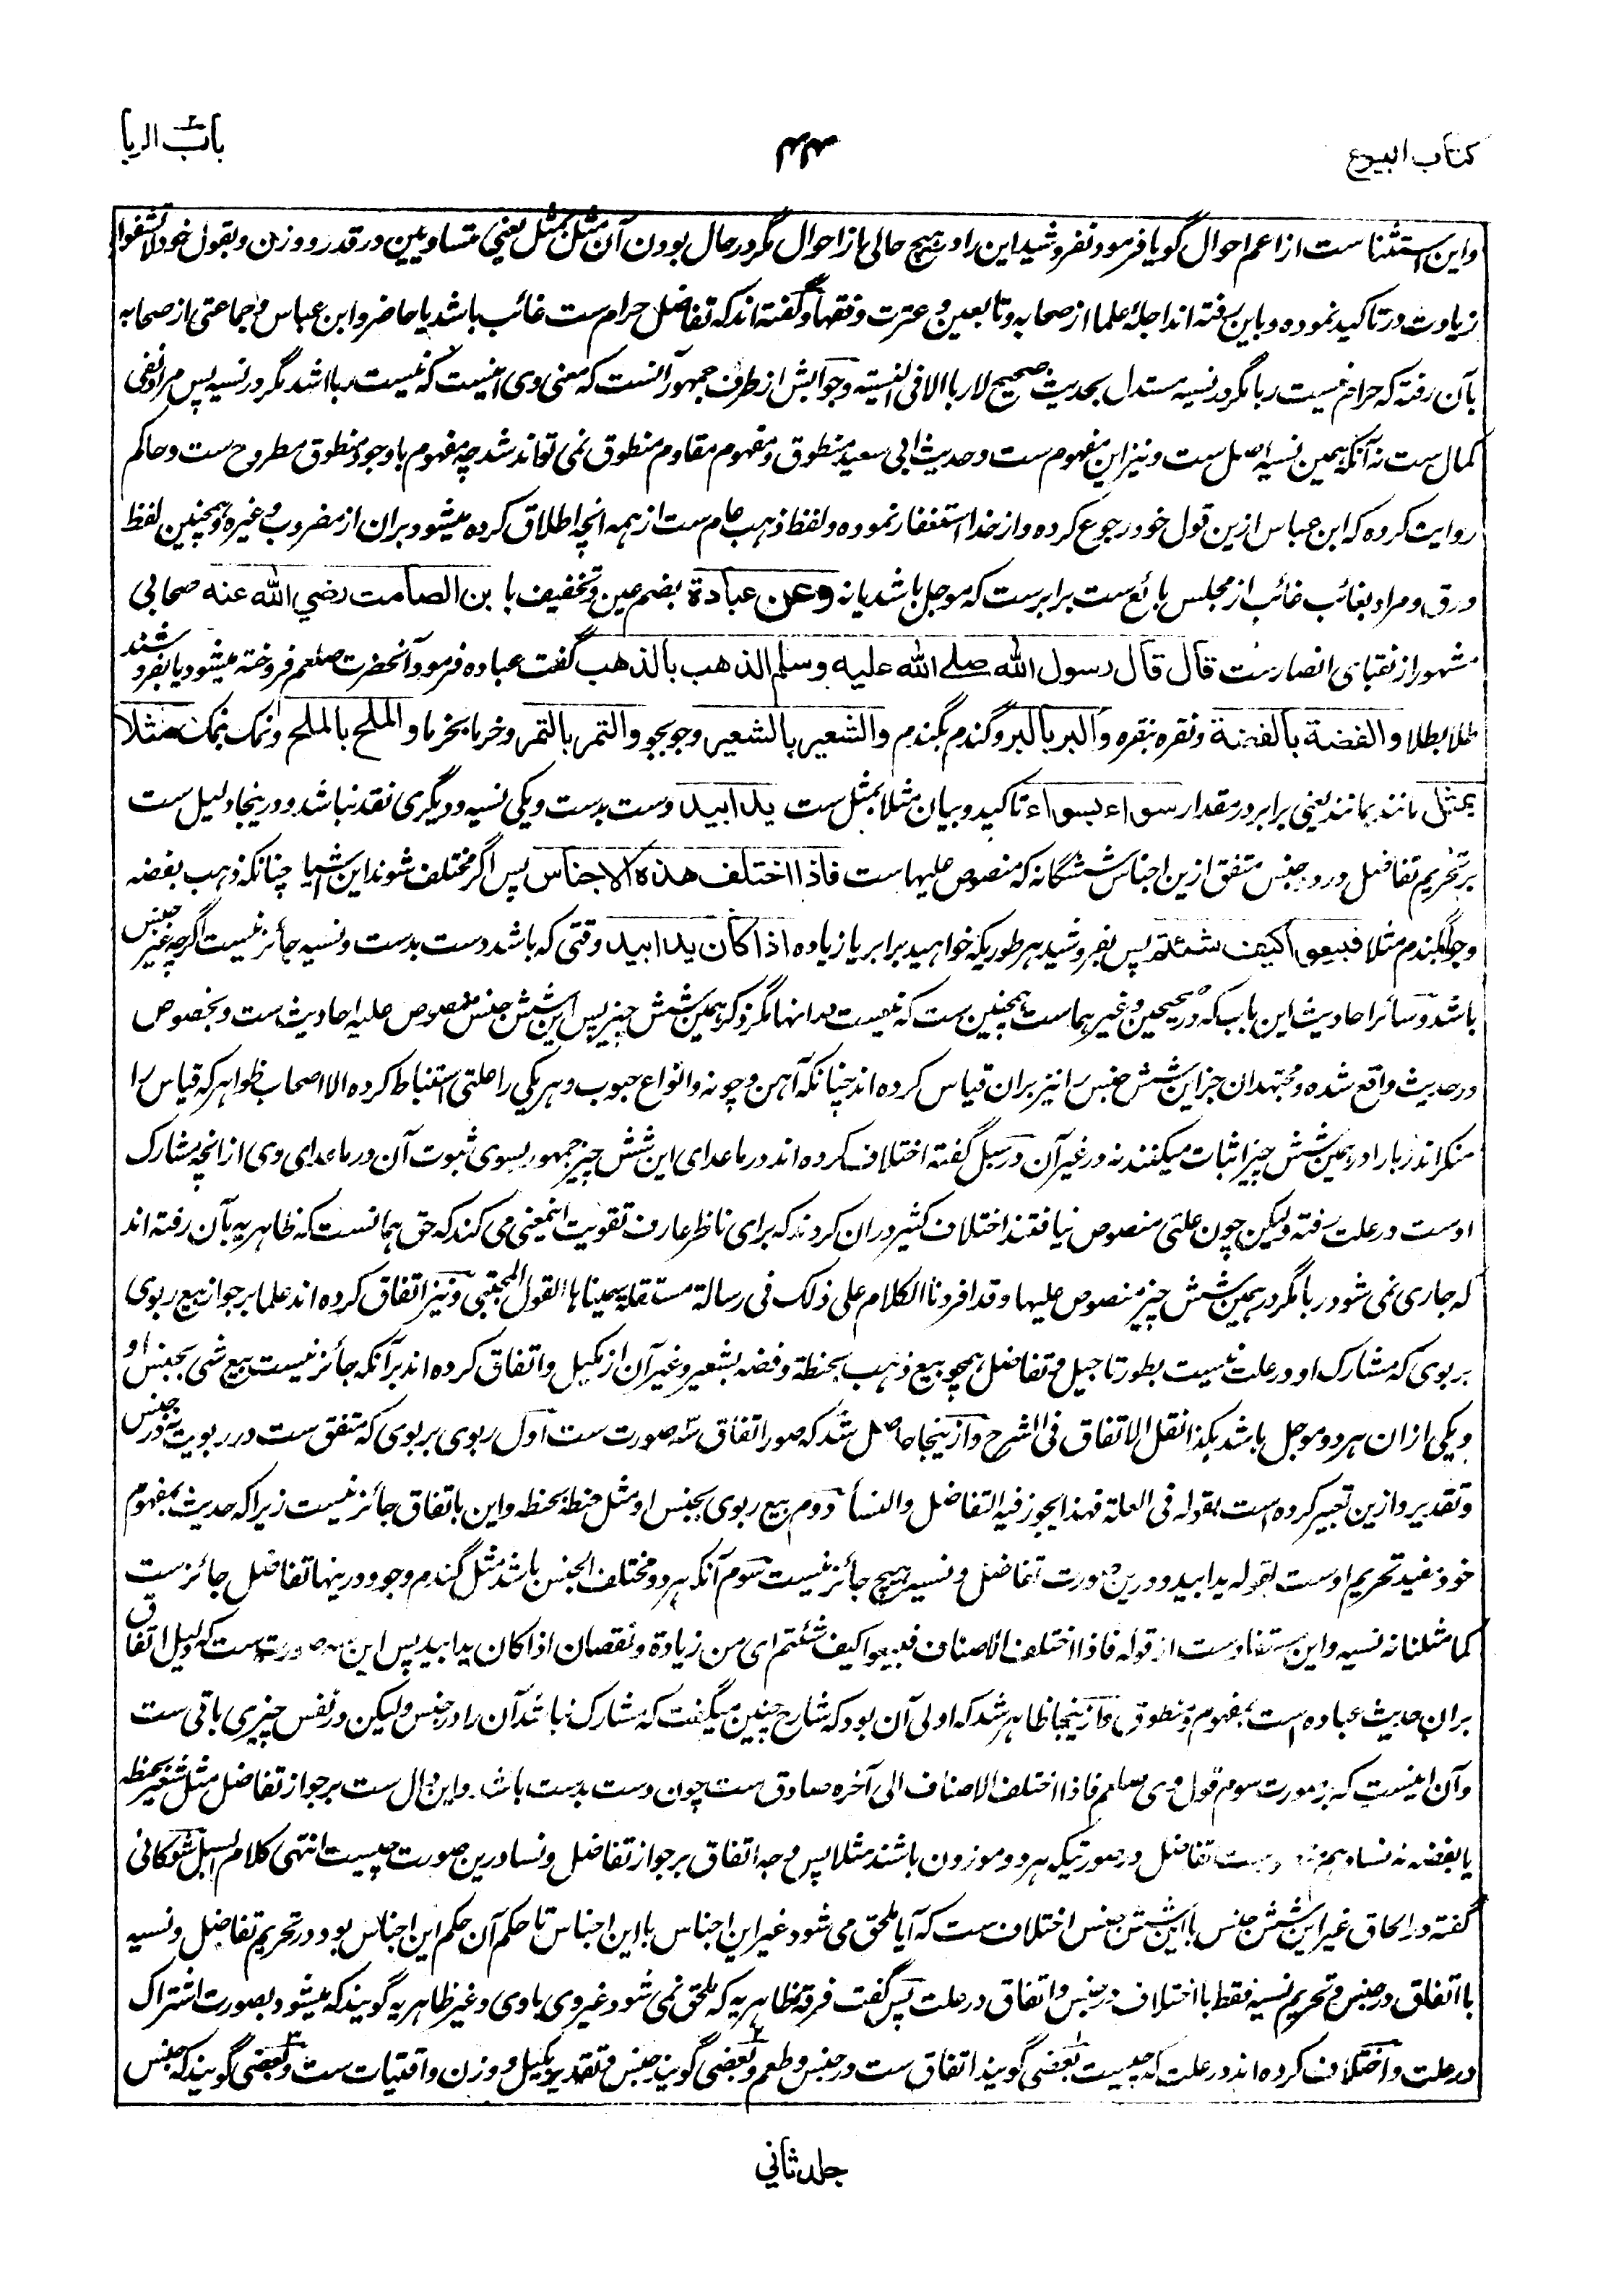 کتاب البیوع
باب الربا
واین استثنا ست از اعم احوال گویا فرمود نفروشید این را در هیچ حالی از احوال مگر در حال بودن آن مثل بمثل یعنی متساویین در قدر و وزن و بقول خود لا تشفوا
زیادت در تاکید نموده و باین رفته اند اجلهٔ علما از صحابه و تابعین و عترت و فقها و گفته اند که تفاضل حرام ست غائب باشد یا حاضر و ابن عباس و جماعتی از صحابه
بآن رفته که حرام نیست ربا مگر در نسیه مستدل بحدیث صحیح لا ربا الا فی النسیئة و جوابش از طرف جمهور آنست که معنی وی اینست که نیست ربا اشد مگر در نسیه پس مراد نفی
کمال ست نه آنکه همین نسیه اصل ست و نیز این مفهوم ست و حدیث ابی سعید منطوق و مفهوم مقاوم منطوق نمی تواند شد چه مفهوم با وجود منطوق مطروح ست و حاکم
روایت کرده که ابن عباس ازین قول خود رجوع کرده و از خدا استغفار نموده و لفظ ذهب عام ست از همه انچه اطلاق کرده میشود بران از مضروب و غیره و همچنین لفظ
ورق و مراد بغائب غائب از مجلس بائع ست برابرست که موجل باشد یا نه وعن عبادة بضم عین و تخفیف با بن الصامت رضي الله عنه صحابی
مشهور از نقبای انصارست قال قال رسول الله صلے الله علیه وسلم الذهب بالذهب گفت عباده فرمود آنحضرت صلعم فروخته میشود یا بفروشند
طلا بطلا والفضة بالفضة و نقره بنقره والبر بالبر و گندم بگندم والشعیر بالشعیر و جو بجو والتمر بالتمر و خرما بخرما والملح بالملح و نمک بنمک مثلا
بمثل مانند بمانند یعنی برابر در مقدار سواء بسواء تاکید و بیان مثلا بمثل ست یدا بید دست بدست و یکی نسیه و دیگری نقد نباشد و درینجا دلیل ست
بر تحریم تفاضل در دو جنس متفق ازین اجناس ششگانه که منصوص علیها ست فاذا اختلف هذه الاجناس پس اگر مختلف شوند این اشیا چنانکه ذهب بفضه
و جو بگندم مثلا فبیعوا کیف شئتم پس بفروشید هر طوریکه خواهید برابر یا زیاده اذا کان یدا بید وقتی که باشد دست بدست و نسیه جائز نیست اگرچه غیر جنس
باشد و سائر احادیث این باب که در صحیحین و غیرهما ست همچنین ست که نیست در انها مگر ذکر همین شش چیز پس این شش جنس منصوص علیه احادیث ست و بخصوص
در حدیث واقع شده و مجتهدان جز این شش جنس را نیز بران قیاس کرده اند چنانکه آهن و چونه و انواع حبوب و هر یکی را علتی استنباط کرده الا اصحاب ظواهر که قیاس را
منکراند ربا را در همین شش چیز اثبات میکنند نه در غیر آن در سبل گفته اختلاف کرده اند در ماعدای این شش چیز جمهور بسوی ثبوت آن در ماعدای وی از انچه مشارک
اوست در علت رفته و لیکن چون علتی منصوص نیافتند اختلاف کثیر دران کردند که برای ناظر عارف تقویت اینمعنی می کند که حق همانست که ظاهریه بآن رفته اند
که جاری نمی شود ربا مگر در همین شش چیز منصوص علیها و قد افردنا الکلام علی ذلک فی رسالة مستقلة سمیناها القول المجتبی و نیز اتفاق کرده اند علما بر جواز بیع ربوی
بربوی که مشارک او در علت نیست بطور تاجیل و تفاضل همچو بیع ذهب بحنطه و فضه بشعیر و غیر آن از مکیل و اتفاق کرده اند بر آنکه جائز نیست بیع شی بجنس او
و یکی ازان هر دو موجل باشد هکذا نقل الاتفاق فی الشرح و ازینجا حاصل شد که صور اتفاق سه صورت ست اول ربوی بربوی که متفق ست در ربویت نه در جنس
و تقدیر و ازین تعبیر کرده است بقوله فی العلة فهذا یجوز فیه التفاضل والنسأ دوم بیع ربوی بجنس او مثل حنطه بحنطه و این باتفاق جائز نیست زیرا که حدیث بمفهوم
خود مفید تحریم اوست بقوله یدا بید و درین صورت تفاضل و نسیه هیچ جائز نیست سوم آنکه هر دو مختلف الجنس باشد مثل گندم و جو و درینها تفاضل جائز ست
کما مثلنا نه نسیه و این مستفادست از قوله فاذا اختلف الاصناف فبیعوا کیف شئتم ای من زیادة و نقصان اذا کان یدا بید پس این سه صورت ست که دلیل اتفاق
بران حدیث عباده است بمفهوم و منطوق و ازینجا ظاهر شد که اولی آن بود که شارح چنین میگفت که مشارک نباشد آن را در جنس و لیکن در نفس چیزی باقی ست
و آن اینست که در صورت سوم قول وی صلعم فاذا اختلف الاصناف الی آخره صادق ست چون دست بدست باشد و این دال ست بر جواز تفاضل مثل شعیر بحنطه
یا بفضه نه نسا و تفاضل در صورتیکه هر دو موزون باشند مثلا پس وجه اتفاق بر جواز تفاضل و نسا درین صورت چیست انتهی کلام السبل شوکانی
گفته در الحاق غیر این شش جنس با این شش جنس اختلاف ست که آیا ملحق می شود غیر این اجناس با این اجناس تا حکم آن حکم این اجناس بود در تحریم تفاضل و نسیه
با اتفاق در جنس و تحریم نسیه فقط با اختلاف در جنس و اتفاق در علت پس گفت فرقهٔ ظاهریه که ملحق نمی شود غیر وی باوی و غیر ظاهریه گویند که میشود بصورت اشتراک
در علت و اختلاف کرده اند در علت که چیست بعضی گویند اتفاق ست در جنس و طعم و بعضی گویند جنس و تقدیر بکیل و وزن و اقتیات ست و بعضی گویند که جنس
جلد ثاني